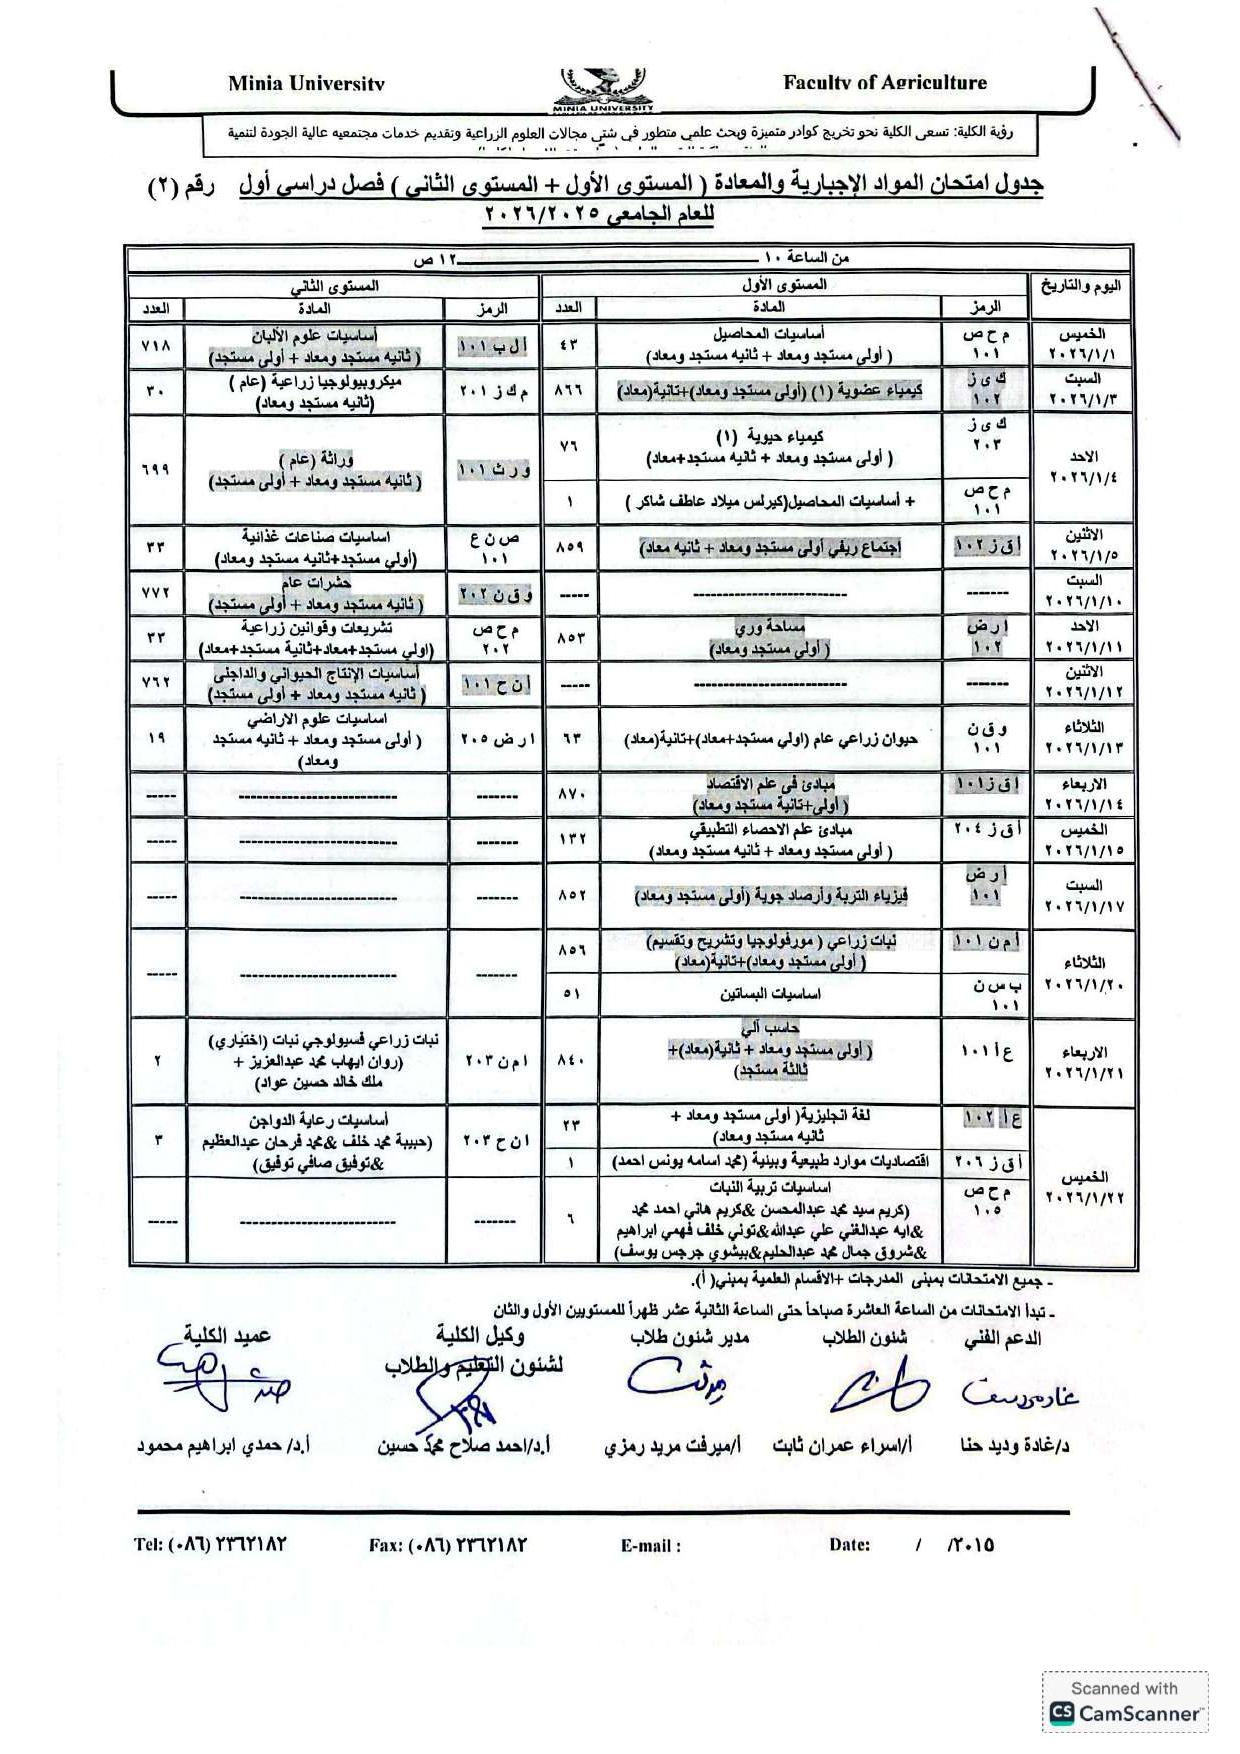 Minia University
MINIA UNIVERSITY
Faculty of Agriculture
رؤية الكلية: تسعى الكلية نحو تخريج كوادر متميزة وبحث علمي متطور في شتى مجالات العلوم الزراعية وتقديم خدمات مجتمعيه عالية الجودة لتنمية
جدول امتحان المواد الإجبارية والمعادة ( المستوى الأول + المستوى الثاني ) فصل دراسى أول رقم (٢)
للعام الجامعى ٢٠٢٦/٢٠٢٥
من الساعة ١٠ ـــــــــــــــــ ١٢ ص
اليوم والتاريخ المستوى الأول المستوى الثاني
الرمز المادة العدد الرمز المادة العدد
الخميس
٢٠٢٦/١/١
م ح ص
١٠١
أساسيات المحاصيل
( أولى مستجد ومعاد + ثانيه مستجد ومعاد)
٤٣
أل ب ١٠١
أساسيات علوم الألبان
( ثانيه مستجد ومعاد + أولى مستجد)
٧١٨
السبت
٢٠٢٦/١/٣
ك ى ز
١٠٢
كيمياء عضوية (١) (أولى مستجد ومعاد)+ثانية(معاد)
٨٦٦
م ك ز ٢٠١
ميكروبيولوجيا زراعية (عام )
(ثانيه مستجد ومعاد)
٣٠
الاحد
٢٠٢٦/١/٤
ك ى ز
٢٠٣
كيمياء حيوية (١)
( أولى مستجد ومعاد + ثانيه مستجد+معاد)
٧٦
م ح ص
١٠١
+ أساسيات المحاصيل(كيرلس ميلاد عاطف شاكر )
١
و ر ث ١٠١
وراثة (عام )
( ثانيه مستجد ومعاد + أولى مستجد)
٦٩٩
الاثنين
٢٠٢٦/١/٥
أ ق ز ١٠٢
اجتماع ريفي أولى مستجد ومعاد + ثانيه معاد)
٨٥٩
ص ن ع
١٠١
اساسيات صناعات غذائية
(أولي مستجد+ثانيه مستجد ومعاد)
٣٣
السبت
٢٠٢٦/١/١٠
-------
--------------------------
-----
و ق ن ٢٠٢
حشرات عام
( ثانيه مستجد ومعاد + أولى مستجد)
٧٧٢
الاحد
٢٠٢٦/١/١١
ا ر ض
١٠٢
مساحة وري
( أولى مستجد ومعاد)
٨٥٣
م ح ص
٢٠٢
تشريعات وقوانين زراعية
(اولي مستجد+معاد+ثانية مستجد+معاد)
٣٣
الاثنين
٢٠٢٦/١/١٢
-------
--------------------------
-----
أ ن ح ١٠١
أساسيات الإنتاج الحيواني والداجنى
( ثانيه مستجد ومعاد + أولى مستجد)
٧٦٢
الثلاثاء
٢٠٢٦/١/١٣
و ق ن
١٠١
حيوان زراعي عام (اولي مستجد+معاد)+ثانية(معاد)
٦٣
ا ر ض ٢٠٥
اساسيات علوم الاراضي
( أولى مستجد ومعاد + ثانيه مستجد
ومعاد)
١٩
الاربعاء
٢٠٢٦/١/١٤
أ ق ز ١٠١
مبادئ فى علم الاقتصاد
( أولى+ثانية مستجد ومعاد)
٨٧٠
-------
--------------------------
-----
الخميس
٢٠٢٦/١/١٥
أ ق ز ٢٠٤
مبادئ علم الاحصاء التطبيقي
( أولى مستجد ومعاد + ثانيه مستجد ومعاد)
١٣٢
-------
--------------------------
-----
السبت
٢٠٢٦/١/١٧
أ ر ض
١٠١
فيزياء التربة وأرصاد جوية (أولى مستجد ومعاد)
٨٥٢
-------
--------------------------
-----
الثلاثاء
٢٠٢٦/١/٢٠
أ م ن ١٠١
نبات زراعي ( مورفولوجيا وتشريح وتقسيم)
( أولى مستجد ومعاد)+ثانية(معاد)
٨٥٦
ب س ن
١٠١
اساسيات البساتين
٥١
-------
--------------------------
-----
الاربعاء
٢٠٢٦/١/٢١
ع أ ١٠١
حاسب آلي
( أولى مستجد ومعاد + ثانية(معاد)+
ثالثة مستجد)
٨٤٠
ا م ن ٢٠٣
نبات زراعي فسيولوجي نبات (اختياري)
(روان ايهاب محمد عبدالعزيز +
ملك خالد حسين عواد)
٢
الخميس
٢٠٢٦/١/٢٢
ع أ ١٠٢
لغة انجليزية( أولى مستجد ومعاد +
ثانيه مستجد ومعاد)
٢٣
أ ق ز ٢٠٦
اقتصاديات موارد طبيعية وبيئية (محمد اسامه يونس احمد)
١
ا ن ح ٢٠٣
أساسيات رعاية الدواجن
(حبيبة محمد خلف &محمد فرحان عبدالعظيم
&توفيق صافي توفيق)
٣
م ح ص
١٠٥
اساسيات تربية النبات
(كريم سيد محمد عبدالمحسن &كريم هاني احمد محمد
&ايه عبدالغني علي عبدالله&توني خلف فهمي ابراهيم
&شروق جمال محمد عبدالحليم&بيشوي جرجس يوسف)
٦
-------
--------------------------
-----
ـ جميع الامتحانات بمبنى المدرجات +الاقسام العلمية بمبنى( أ).
ـ تبدأ الامتحانات من الساعة العاشرة صباحاً حتى الساعة الثانية عشر ظهراً للمستويين الأول والثان
الدعم الفني شئون الطلاب مدير شئون طلاب وكيل الكلية عميد الكلية
لشئون التعليم والطلاب
د/غادة وديد حنا أ/اسراء عمران ثابت أ/ميرفت مريد رمزي أ.د/احمد صلاح محمد حسين أ.د/ حمدي ابراهيم محمود
Tel: (٠٨٦) ٢٣٦٢١٨٢ Fax: (٠٨٦) ٢٣٦٢١٨٢ E-mail : Date: / /٢٠١٥
Scanned with
CS CamScanner